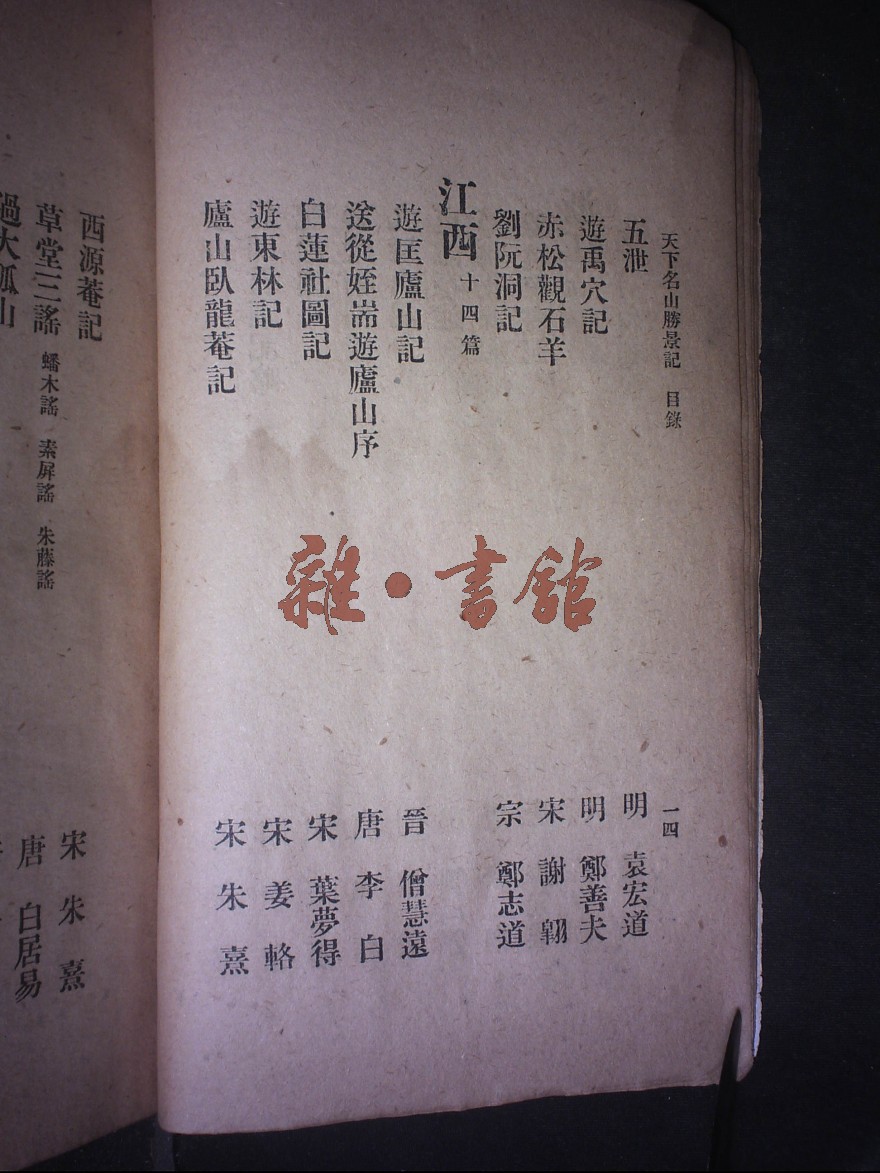 天下名山勝景記 目錄 一四
五泄 明 袁宏道
遊禹穴記 明 鄭善夫
赤松觀石羊 宋 謝翱
劉阮洞記 宗 鄭志道
江西 十四篇
遊匡廬山記 晉 僧慧遠
送從姪耑遊廬山序 唐 李白
白蓮社圖記 宋 葉夢得
遊東林記 宋 姜輅
廬山臥龍菴記 宋 朱熹
西源菴記 宋 朱熹
草堂三謠 蟠木謠 素屏謠 朱藤謠 唐 白居易
過大孤山
雜·書館